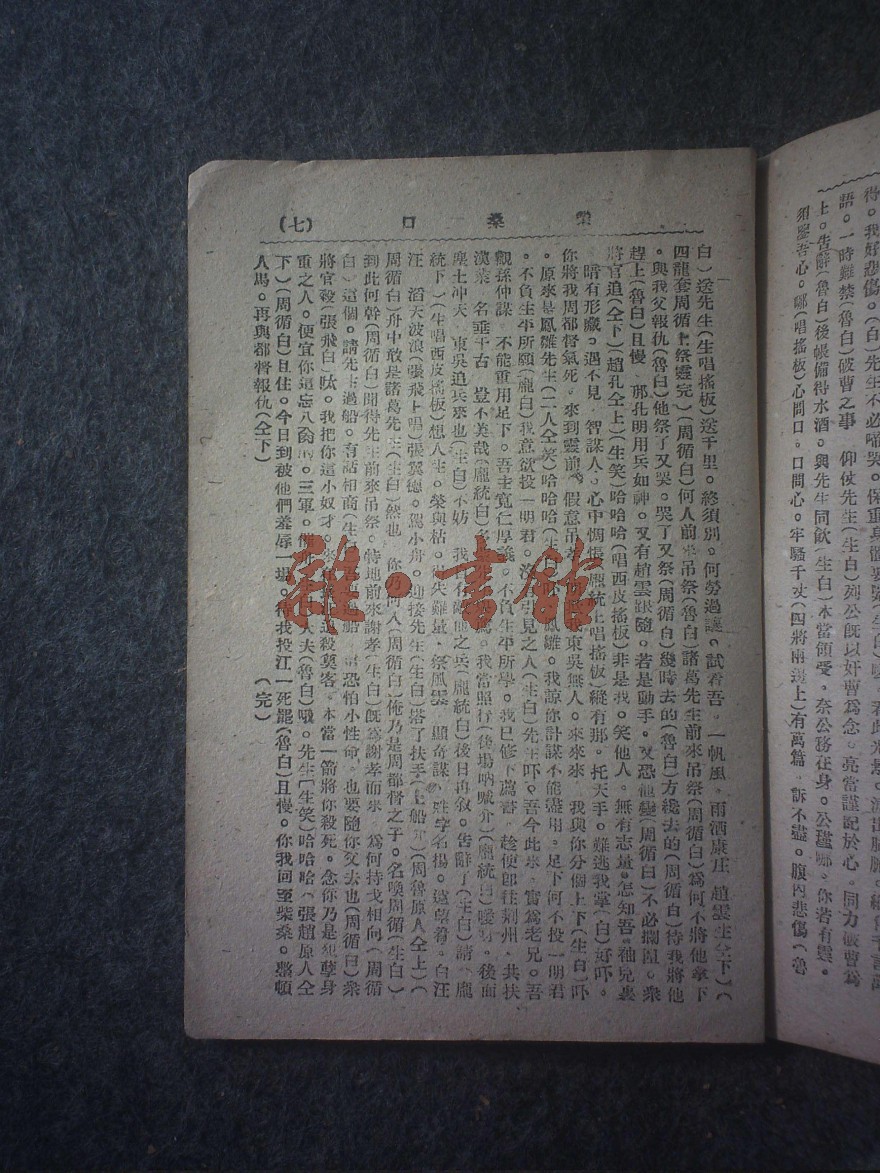 得。我好悲傷。(白)先生不必啼哭。保重身體要緊
語。一時難禁(魯白)破曹之事 仰仗先生(生白)列公既以奸曹爲念。亮當謹記於心。同力破曹爲
上。告辭(魯白)後帳備得水酒。與先生同飲(生白)本當領受。奈公務在身。公瑾哪。你若有靈。
須聽吾心。哪(唱搖板)心問口。口問心。牢騷千丈(四將兩邊上)有萬篇。訴不盡。腹內悲傷(魯
柴桑口 (七)
白)送先生(生唱搖板)送千里。終須別。何勞過謙。試看吾。一帆風。雨洒康庄 趙雲生仝下)(
四龍套周循上祭靈完)(周循白)何人前來吊祭(魯白)諸葛先生前來吊祭(周循白)爲何不將他拿下
。與我父報仇(魯白)他祭了又哭。哭了又祭(周循白)幾時去的(魯白)方纔去的(周循白)待我將他
趕上(魯白)且慢。那孔明用兵如神。又有趙雲跟隨。若是動手。又恐他變(周循白)不必攔阻。衆
將官追(仝下)(趙孔仝上)(生笑)哈哈哈(唱西皮搖板)非是我。笑他人。無有志量。怎知吾。袖兒裏
暗有形藏。遇不見 智謀人。心中惆悵(龐統上唱搖板)縱有那。托天手。難逃我掌(白)好吓。
你將我周都督氣死。來到靈前。假意吊孝 東吳無人。來來來 我與你分個上下(生白)吓
。原來是鳳雛先生(二人仝笑)哈哈哈(生白) 鳳雛。我諒你計謀不能盡用。足下何不投一明君
。不負生平所願(龐白)我意欲投一明君。沒 引見之人(生白)先生吓。吾今此來。實爲老兄。吾
觀孫仲謀 不能重用足下。吾主寬仁厚義。不負生平所學。我已修下薦書。趁便卽往荆州。共扶
漢業 名垂千古 豈不美哉(龐統白)多 我當照行(後場吶喊介)(龐統白)嗳吓。後面
塵土冲天 東吳追兵來也(生白)不妨 我自有 之兵(龐統白)後日再敘。告辭了(生白)請(龐
統下)(生唱西皮搖板)想人生。榮與枯。得失難量。祭風雲 顯奇謀 姓字名揚。遠望着。白汪
汪 滔天波浪(張飛上唱)張翼德。駕小舟。迎接先生(生白)搭了扶手(上船介)(周魯原人仝上)(
周循白)舟中敢是諸葛先生(生白)然也 你乃何人(周循白)俺乃是周都督之子。名喚周循(生白)
到此何幹(周循白)聞得先生前來吊祭。特地前來謝孝(生白)既爲謝孝而來 爲何持戈相向(周循
白)這個。請先生過船。有話相商(生白) 過船 恐怕小性命。也要隨你父去也(周循白)衆
將官殺(張飛白)呔。我把你這小奴才。 殺奠客。本當一箭將你殺死。念你乃是 孽身
重之人。便宜你這忘八 三軍。 (魯白)哦。先生(生笑)哈哈哈(張趙原人仝
下)(周循白)且住。今日到被他們羞辱一場。待我投江一死罷(魯白)且慢。你我回至柴桑。整頓
人馬。再與都督報仇(仝下) (完)
雜·書館